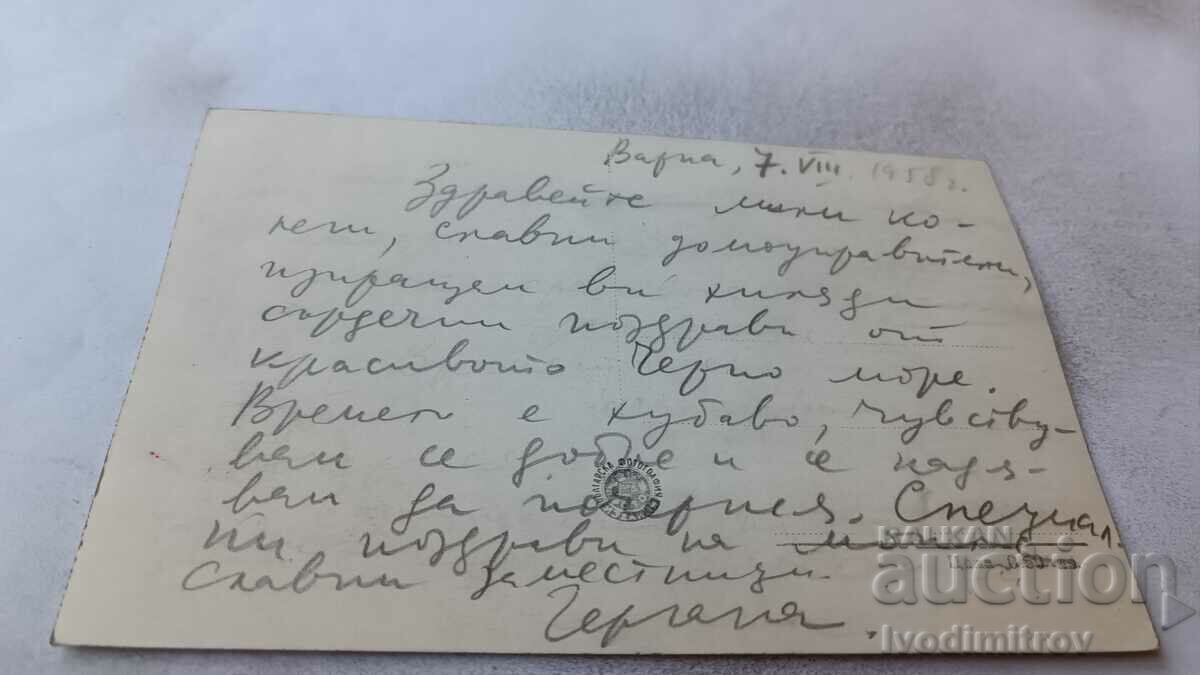 Варна, 7. VIII. 1958 г.
Здравейте мили ко-
леги, славни домоуправители,
изпращам ви хиляди
сърдечни поздрави от
красивото Черно море.
Времето е хубаво, чувству-
вам се добре и се надя-
вам да почернея. Специал-
ни поздрави на
славни заместници.
Гергана.
БЪЛГАРСКА ФОТОГРАФИЯ
BALKAN
auction
Ivodimitrov